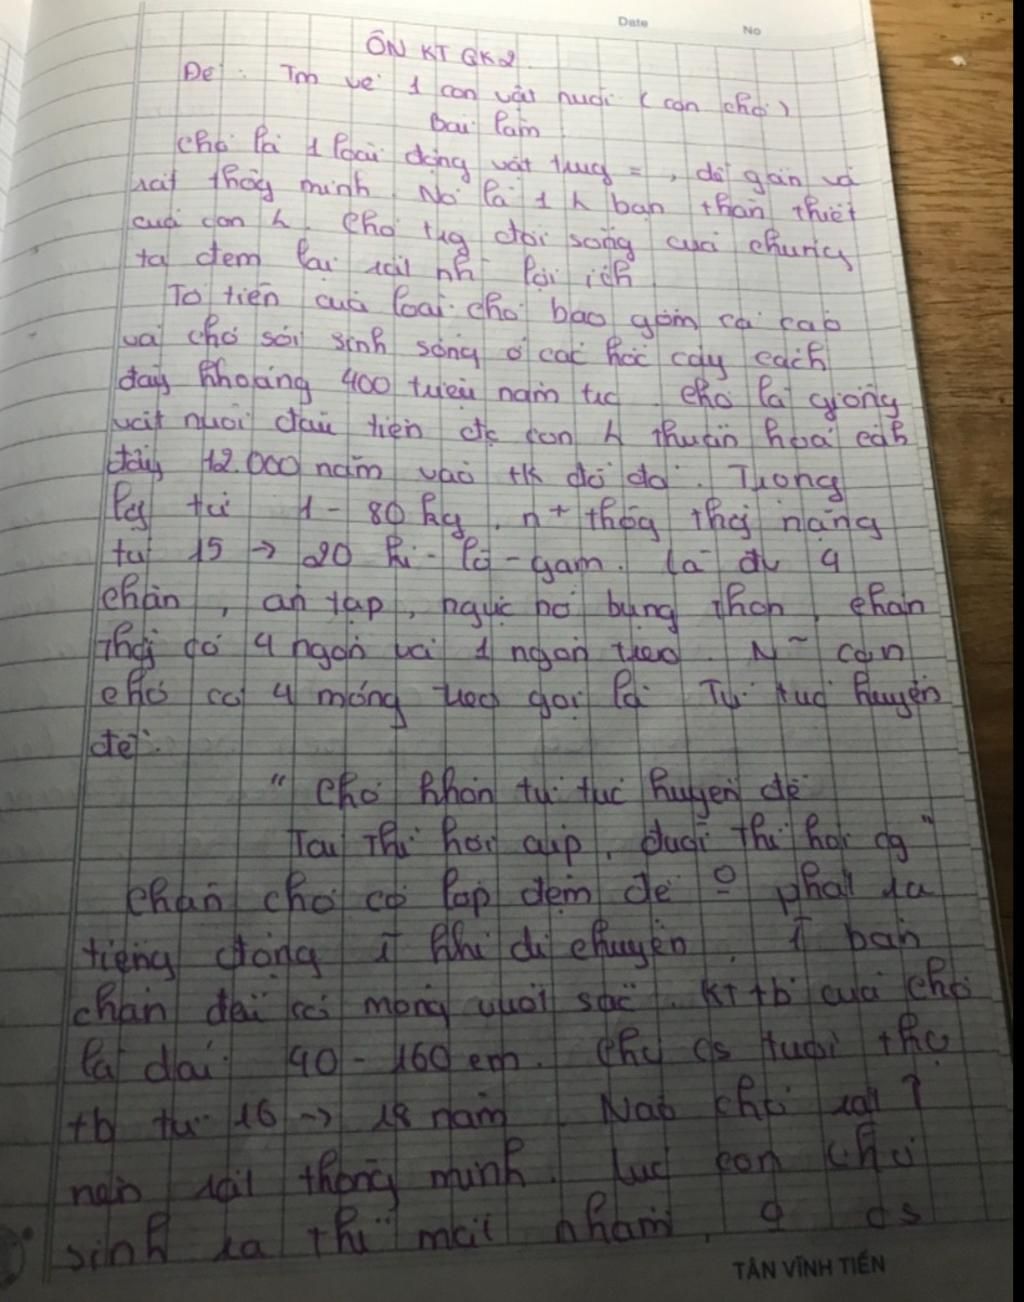 Date No
ÔN KT GK2
Đề: Tm về 1 con vật nuôi (con chó)
Bài làm
Chó là 1 loài động vật trug =, dễ gần và
rất thôg minh. Nó là 1 h bạn thân thiết
của con h. Chó trg đời sống của chúng
ta đem lại rất nh lợi ích
Tổ tiên của loài chó bao gồm cả cáo
và chó sói sinh sống ở các hốc cây cách
đây khoảng 400 triệu năm trc. Chó là giống
vật nuôi đầu tiên đc con h thuần hoá cáh
đây 12.000 năm vào tk đồ đá. Trọng
lg từ 1 - 80 kg, n+ thôg thg nặng
từ 15 → 20 ki-lô-gam. Là đv 4
chân, ăn tạp, ngực nở bụng thon, chân
thg có 4 ngón và 1 ngón treo. N~ con
chó có 4 móng treo gọi là "Tứ túc huyền
đề".
"Chó khôn tứ túc huyền đề
Tai thì hơi cúp, đuôi thì hơi cg"
Chân chó có lớp đệm để phát ra
tiếng động khi di chuyển, bàn
chân đều có móng vuốt sắc. KT tb của chó
là dài: 40 - 160 cm. Chó cs tuổi thọ
tb từ 16 → 18 năm. Não chó rất ?
nên rất thông minh. Lúc con chó
sinh ra thì mắt nhắm, cs
TÂN VĨNH TIẾN